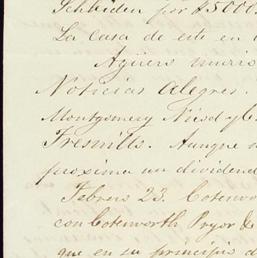 Scheiden por £5000.
La Casa de este en
Agüero muris
Noticias Alegres.
Montgomery Nisod y C
Fresnillo. Aunque
proxima un dividend
Febrero 23. Cotesw
con Cotesworth Pryor &
que en su principio d